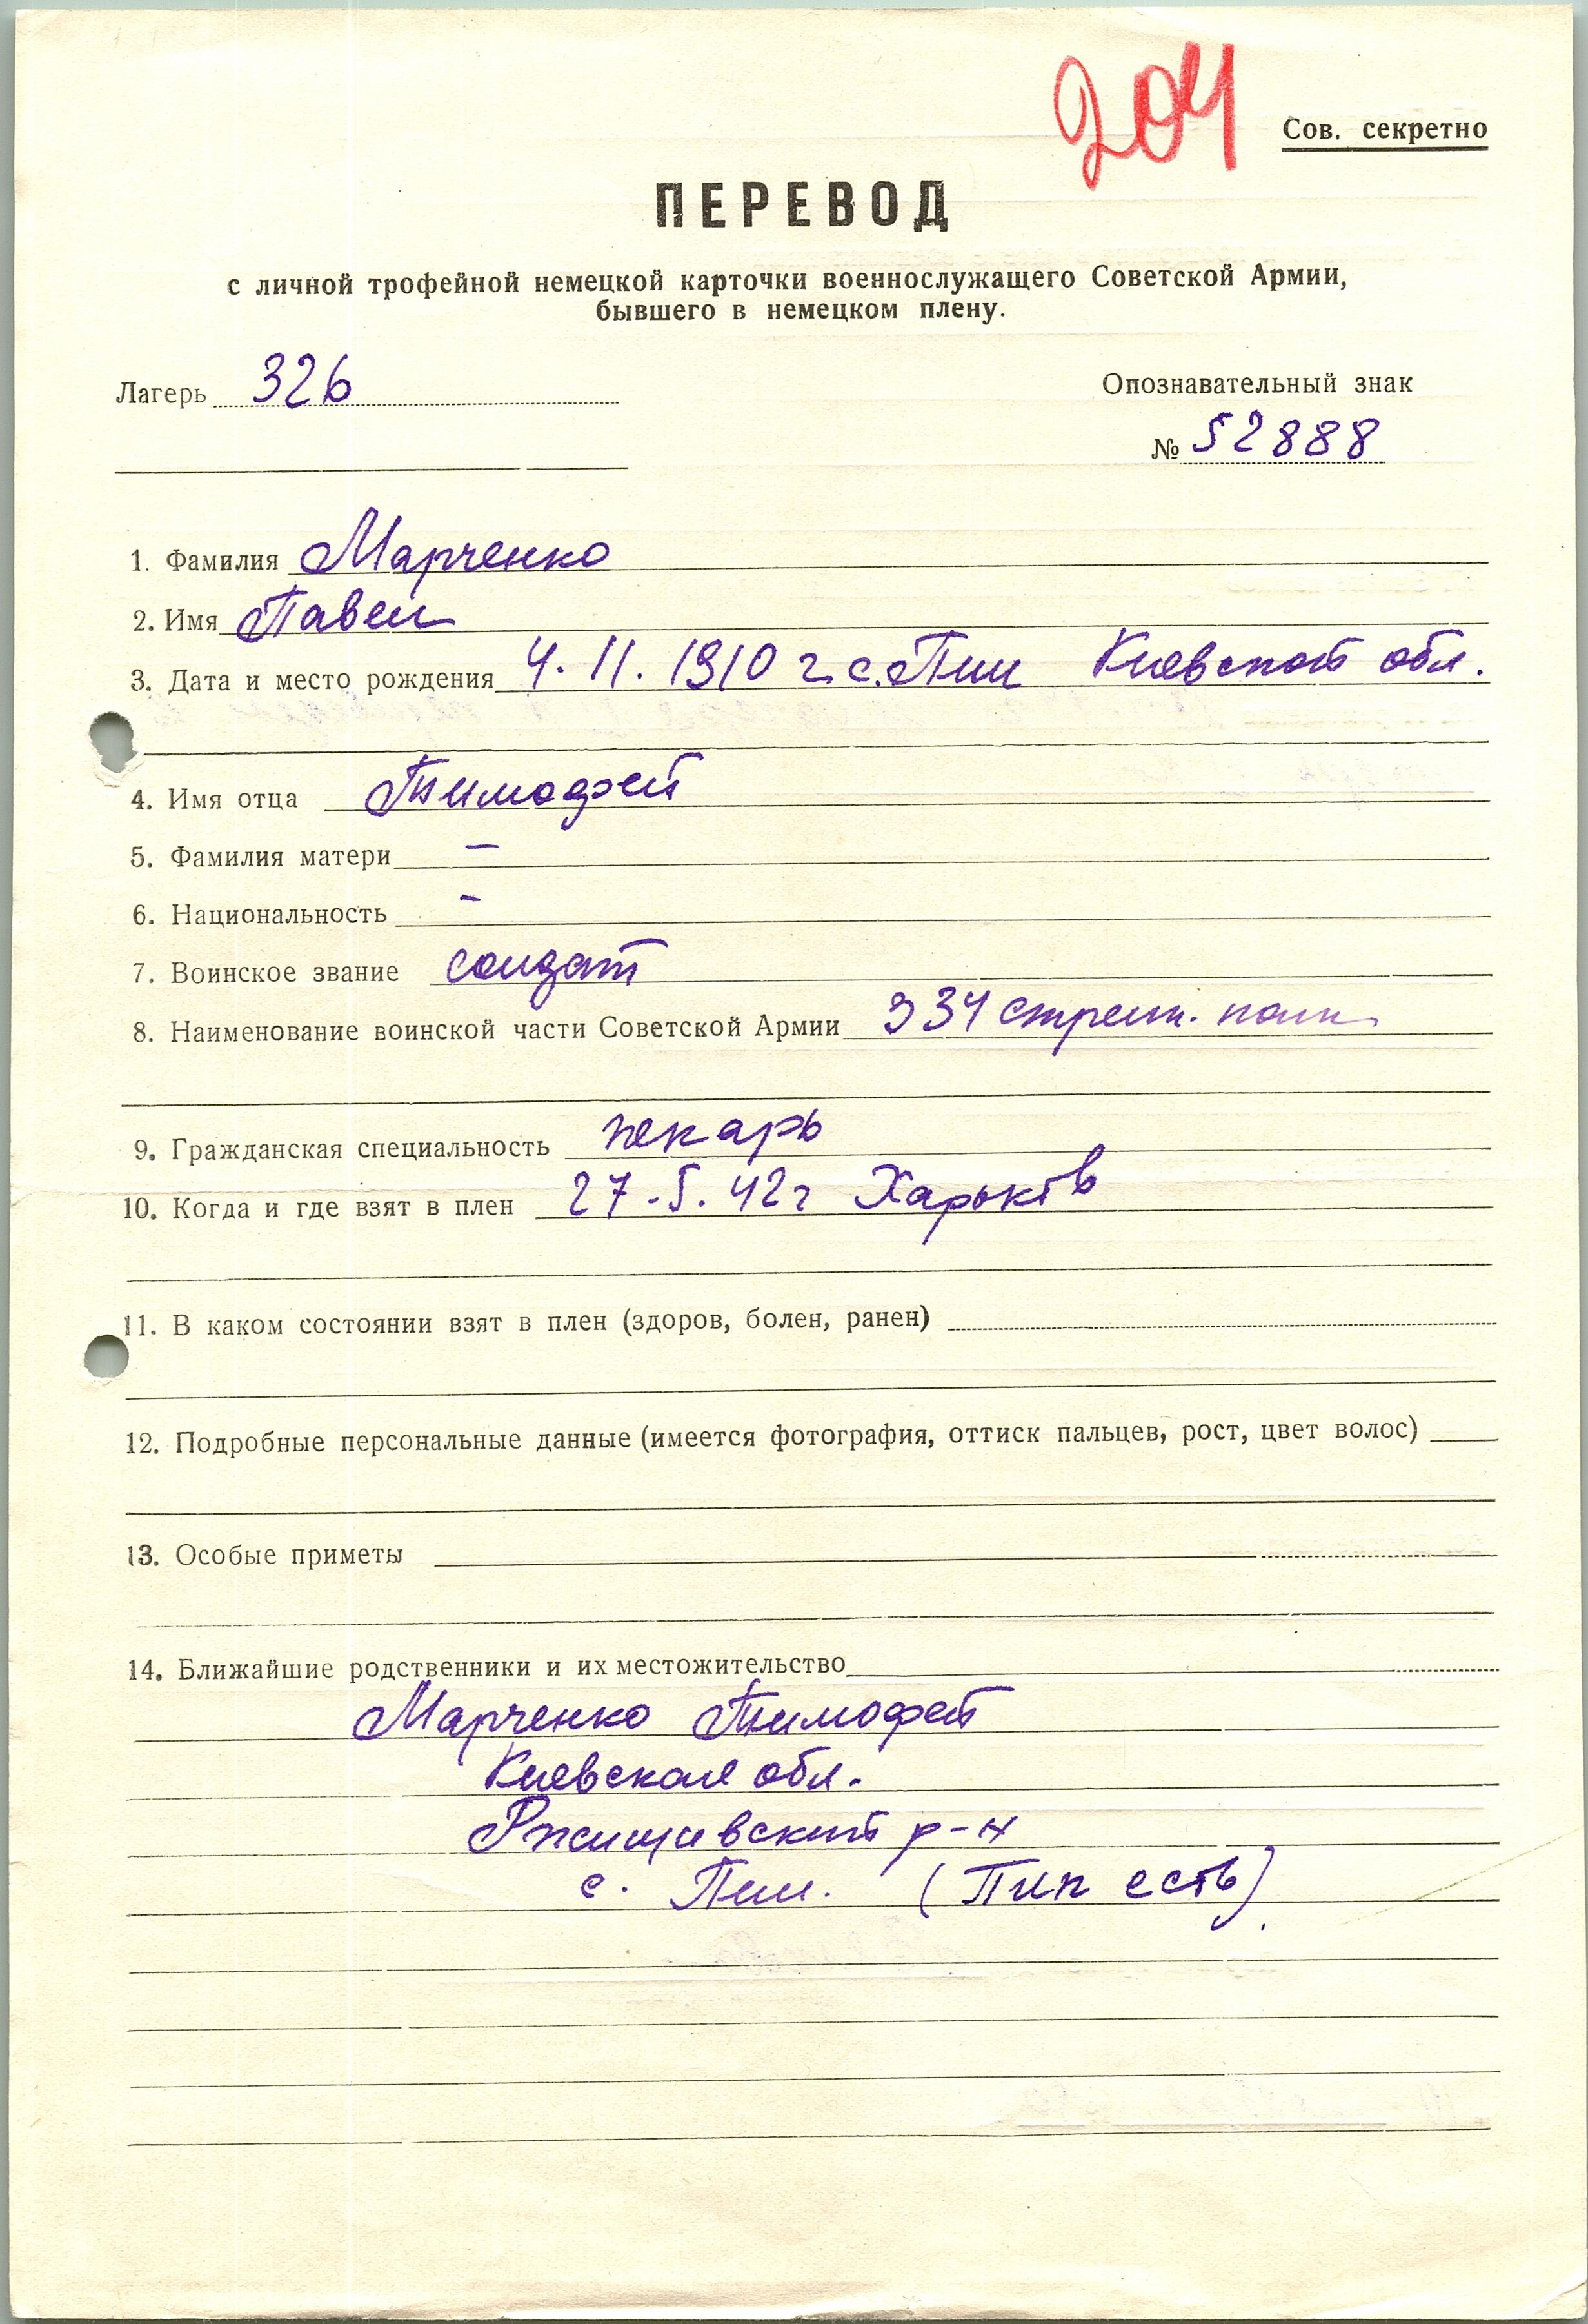 204
Сов. секретно
ПЕРЕВОД
с личной трофейной немецкой карточки военнослужащего Советской Армии,
бывшего в немецком плену.
Лагерь 326
Опознавательный знак
№ 52888
1. Фамилия Марченко
2. Имя Павел
3. Дата и место рождения 4.11.1910 г. с. Пии Киевской обл.
4. Имя отца Тимофей
5. Фамилия матери —
6. Национальность -
7. Воинское звание солдат
8. Наименование воинской части Советской Армии 334 стрелк. полк
9. Гражданская специальность пекарь
10. Когда и где взят в плен 27.5.42 г Харьков
11. В каком состоянии взят в плен (здоров, болен, ранен)
12. Подробные персональные данные (имеется фотография, оттиск пальцев, рост, цвет волос)
13. Особые приметы
14. Ближайшие родственники и их местожительство
Марченко Тимофей
Киевская обл.
Ржищевский р-н
с. Пии. (Пип есть).